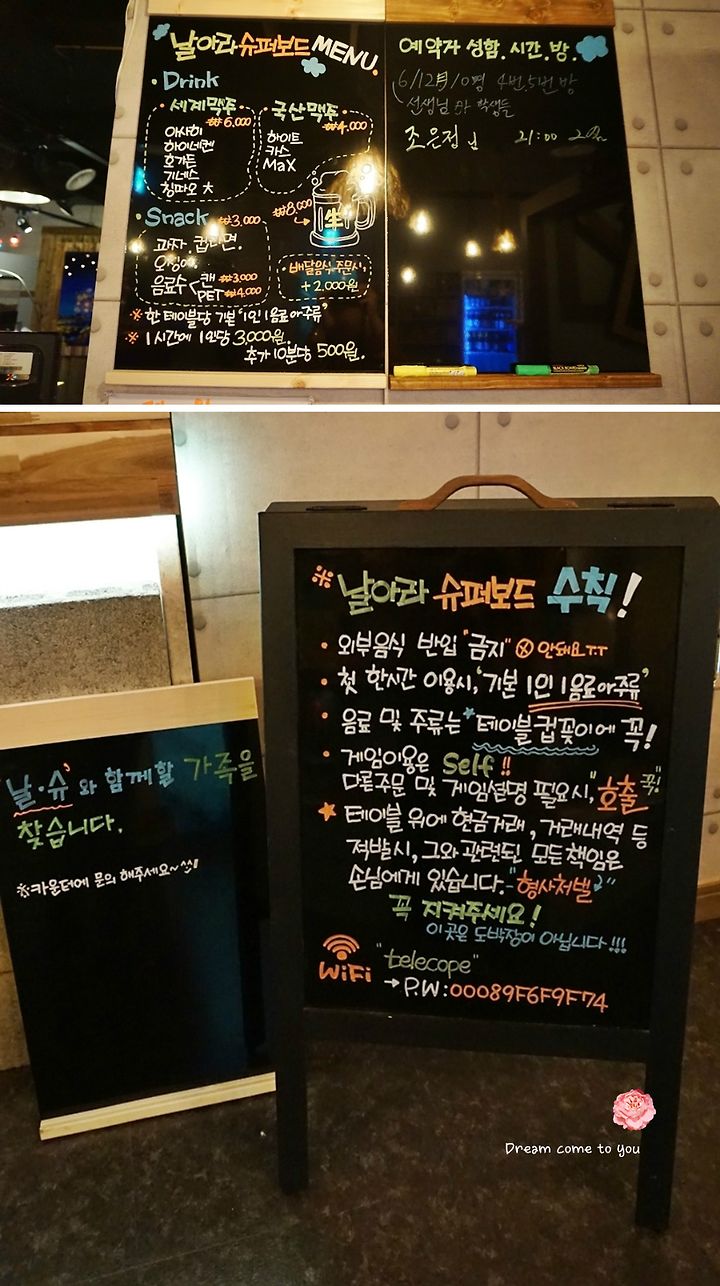 날아라 슈퍼보드 MENU.
• Drink
• 세계맥주
₩6,000
아사히
하이네켄
호가든
기네스
칭따오 大
국산맥주 •
₩4,000
하이트
카스
MaX
₩8,000
生
• Snack
₩3,000
과자. 컵라면.
오징어.
음료수 < 캔 ₩3,000
PET ₩4,000
배달음식 주문시,
+2,000원
※ 한 테이블당 기본 '1인 1음료 or 주류'
※ 1시간에 1인당 3,000원.
추가 10분당 500원.
예약자 성함. 시간. 방.
6/12 10명 4번.5번 방
선생님 와 학생들
조은정 님 21:00
※ 날아라 슈퍼보드 수칙!
• 외부음식 반입 "금지" ⓧ 안돼요 T.T
• 첫 한시간 이용시, '기본 1인 1음료 or 주류'
• 음료 및 주류는 * 테이블 컵꽂이에 꼭!
• 게임이용은 Self!!
다른주문 및 게임설명 필요시, "호출" 꾹!
★ 테이블 위에 현금거래, 거래내역 등
적발시, 그와 관련된 모든 책임은
손님에게 있습니다. - "형사처벌"
꼭 지켜주세요!
이곳은 도박장이 아닙니다!!!
WiFi "telecope"
→ P.W: 00089F6F9F74
'날·슈'와 함께할 가족을
찾습니다.
※카운터에 문의 해주세요~^^!
Dream come to you